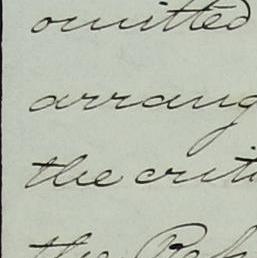 omitted
arrang
the crit
the